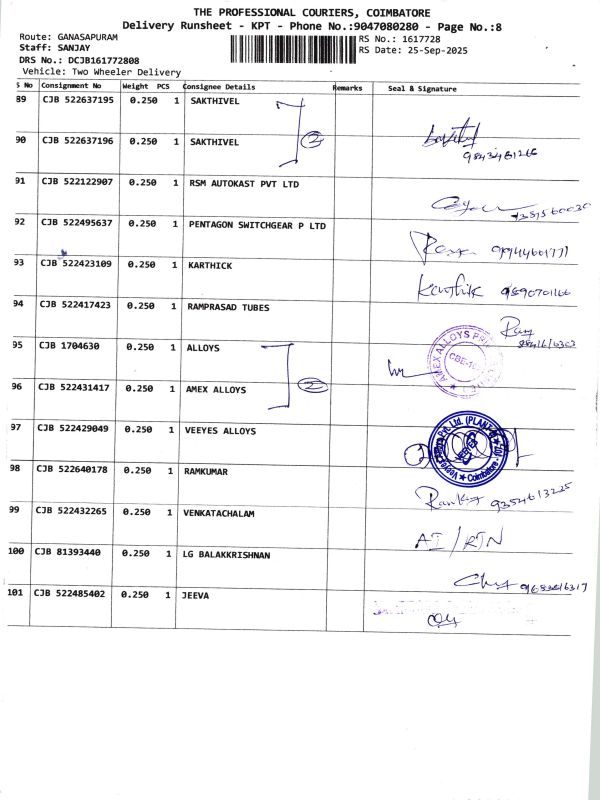 THE PROFESSIONAL COURIERS, COIMBATORE
Delivery Runsheet - KPT - Phone No.:9047080280 - Page No.:8
Route: GANASAPURAM
RS No.: 1617728
Staff: SANJAY
RS Date: 25-Sep-2025
DRS No.: DCJB161772808
Vehicle: Two Wheeler Delivery
S No Consignment No Weight PCS Consignee Details Remarks Seal & Signature
89 CJB 522637195 0.250 1 SAKTHIVEL
90 CJB 522637196 0.250 1 SAKTHIVEL 2
9843481266
91 CJB 522122907 0.250 1 RSM AUTOKAST PVT LTD
92 CJB 522495637 0.250 1 PENTAGON SWITCHGEAR P LTD
99944601771
93 CJB 522423109 0.250 1 KARTHICK
Karthik 9890701166
94 CJB 522417423 0.250 1 RAMPRASAD TUBES
95 CJB 1704630 0.250 1 ALLOYS
96 CJB 522431417 0.250 1 AMEX ALLOYS 2
97 CJB 522429049 0.250 1 VEEYES ALLOYS
98 CJB 522640178 0.250 1 RAMKUMAR
9354613225
99 CJB 522432265 0.250 1 VENKATACHALAM
AI/RTN
100 CJB 81393440 0.250 1 LG BALAKKRISHNAN
101 CJB 522485402 0.250 1 JEEVA